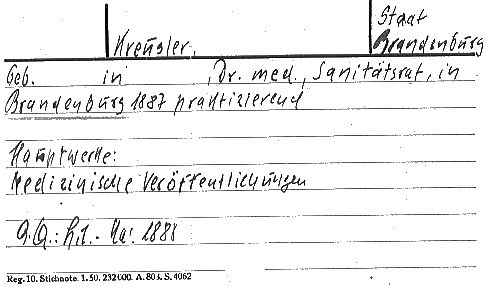 Staat
Kreusler, Brandenburg
Geb. in , Dr. med., Sanitätsrat, in
Brandenburg 1887 praktizierend
Hauptwerke:
Medizinische Veröffentlichungen
1888
Reg. 10. Stichnote. 1. 50. 232000. A. 803. S. 4062